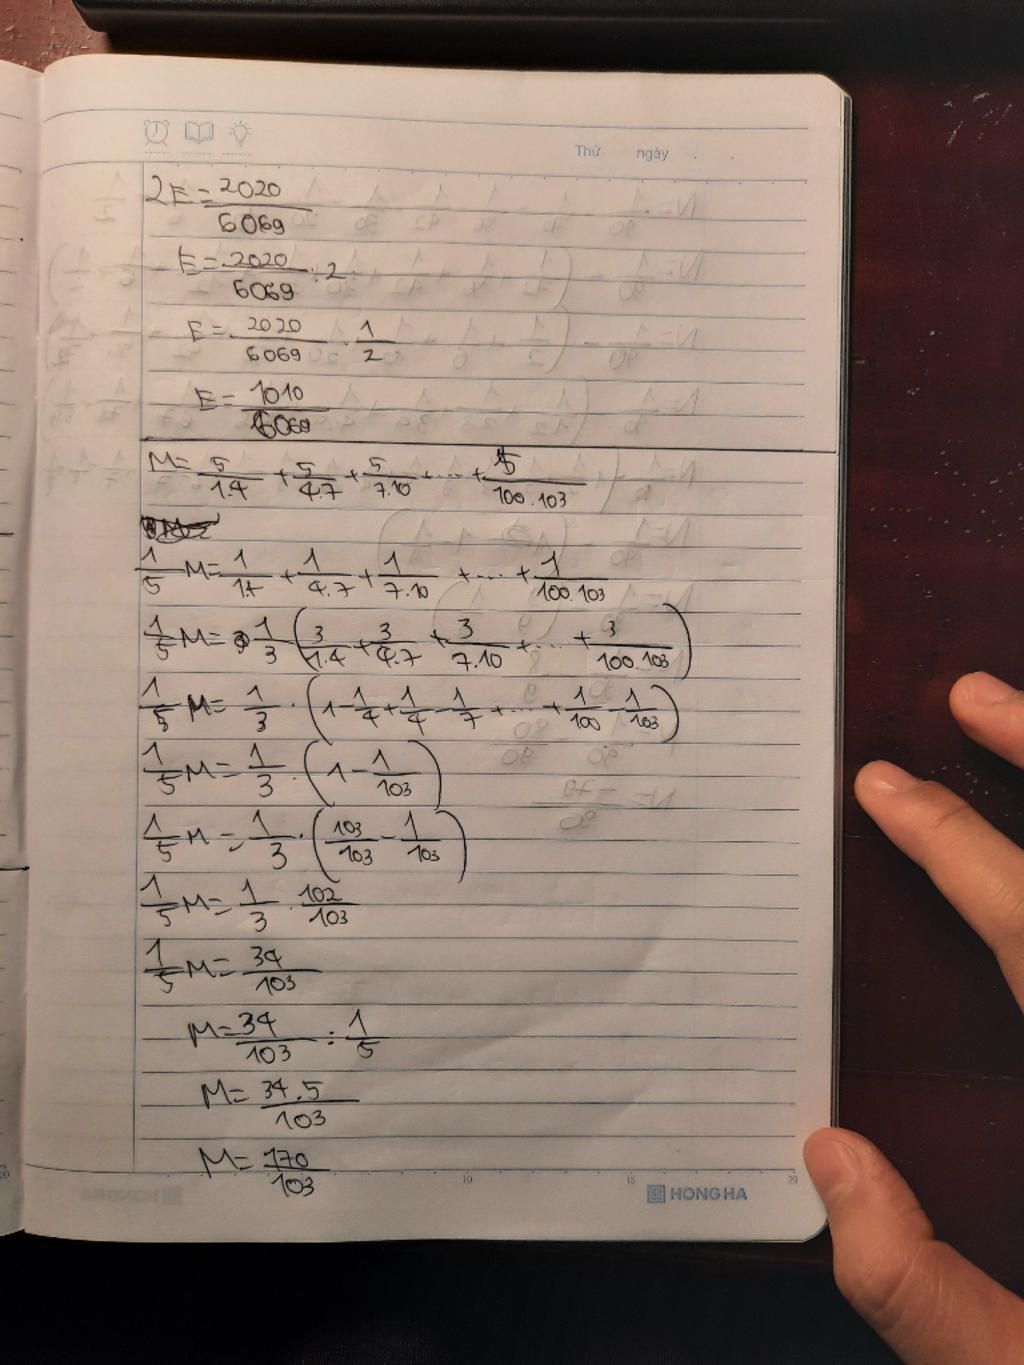 Thứ ngày
2E = 2020/6069
E = 2020/6069 : 2
E = 2020/6069 . 1/2
E = 1010/6069
M = 5/1.4 + 5/4.7 + 5/7.10 + ... + 5/100.103
1/5 M = 1/1.4 + 1/4.7 + 1/7.10 + ... + 1/100.103
1/5 M = 1/3 (3/1.4 + 3/4.7 + 3/7.10 + ... + 3/100.103)
1/5 M = 1/3 . (1 - 1/4 + 1/4 - 1/7 + ... + 1/100 - 1/103)
1/5 M = 1/3 . (1 - 1/103)
1/5 M = 1/3 . (103/103 - 1/103)
1/5 M = 1/3 . 102/103
1/5 M = 34/103
M = 34/103 : 1/5
M = 34.5/103
M = 170/103
10 15 20
HONG HA